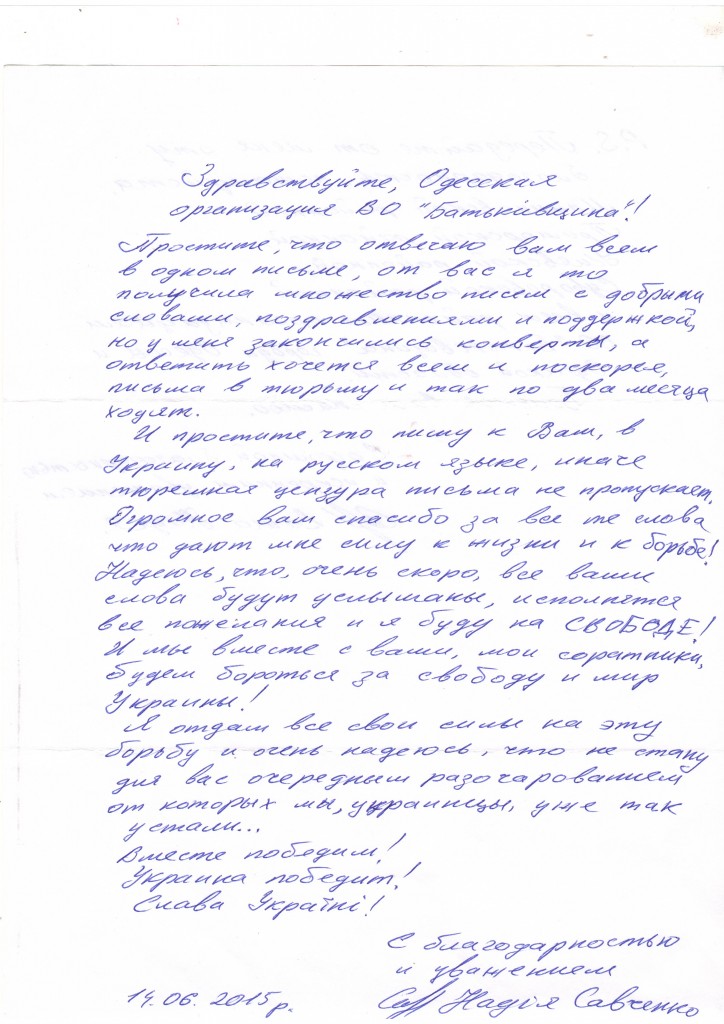 Здравствуйте, Одесская
организация ВО "Батьківщина"!
Простите, что отвечаю вам всем
в одном письме, от вас я то
получила множество писем с добрыми
словами, поздравлениями и поддержкой,
но у меня закончились конверты, а
ответить хочется всем и поскорея,
письма в тюрьму и так по два месяца
ходят.
И простите, что пишу к Вам, в
Украину, на русском языке, иначе
тюремная цензура письма не пропускает.
Огромное вам спасибо за все те слова
что дают мне силу к жизни и к борьбе!
Надеюсь, что, очень скоро, все ваши
слова будут услышаны, исполнятся
все пожелания и я буду на СВОБОДЕ!
И мы вместе с вами, мои соратники,
будем бороться за свободу и мир
Украины!
Я отдам все свои силы на эту
борьбу и очень надеюсь, что не стану
для вас очередным разочарованием
от которых мы, украинцы, уже так
устали...
Вместе победим!
Украина победит!
Слава Україні!
С благодарностью
и уважением
14.06.2015р. Надія Савченко